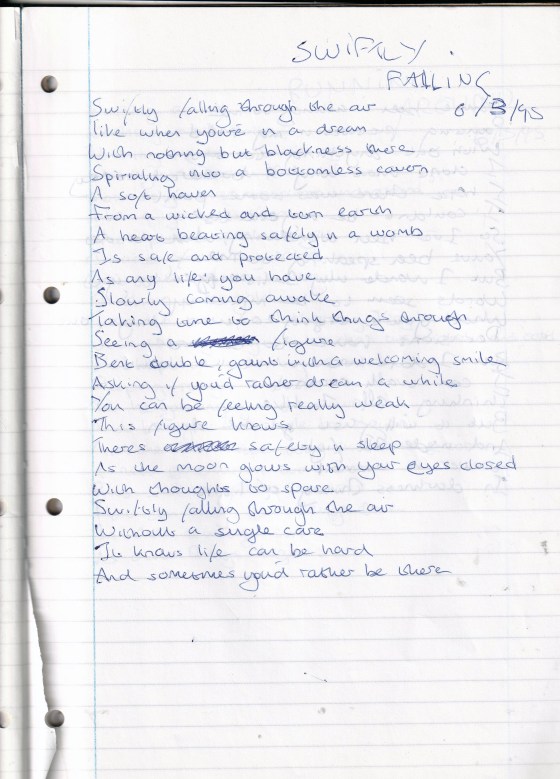 SWIFTLY.
FALLING
6/3/95
Swiftly falling through the air
like when you're in a dream
With nothing but blackness there
Spirialing into a bottomless cavern
A soft haven
From a wicked and torn earth
A heart beating safely in a womb
Is safe and protected
As any life you have
Slowly coming awake
Taking time to think things through
Seeing a figure
Bent double, gaunt with a welcoming smile
Asking if you'd rather dream a while
You can be feeling really weak
This figure knows
Theres safety in sleep
As the moon glows with your eyes closed
With thoughts to spare
Swiftly falling through the air
Without a single care
It knows life can be hard
And sometimes you'd rather be there